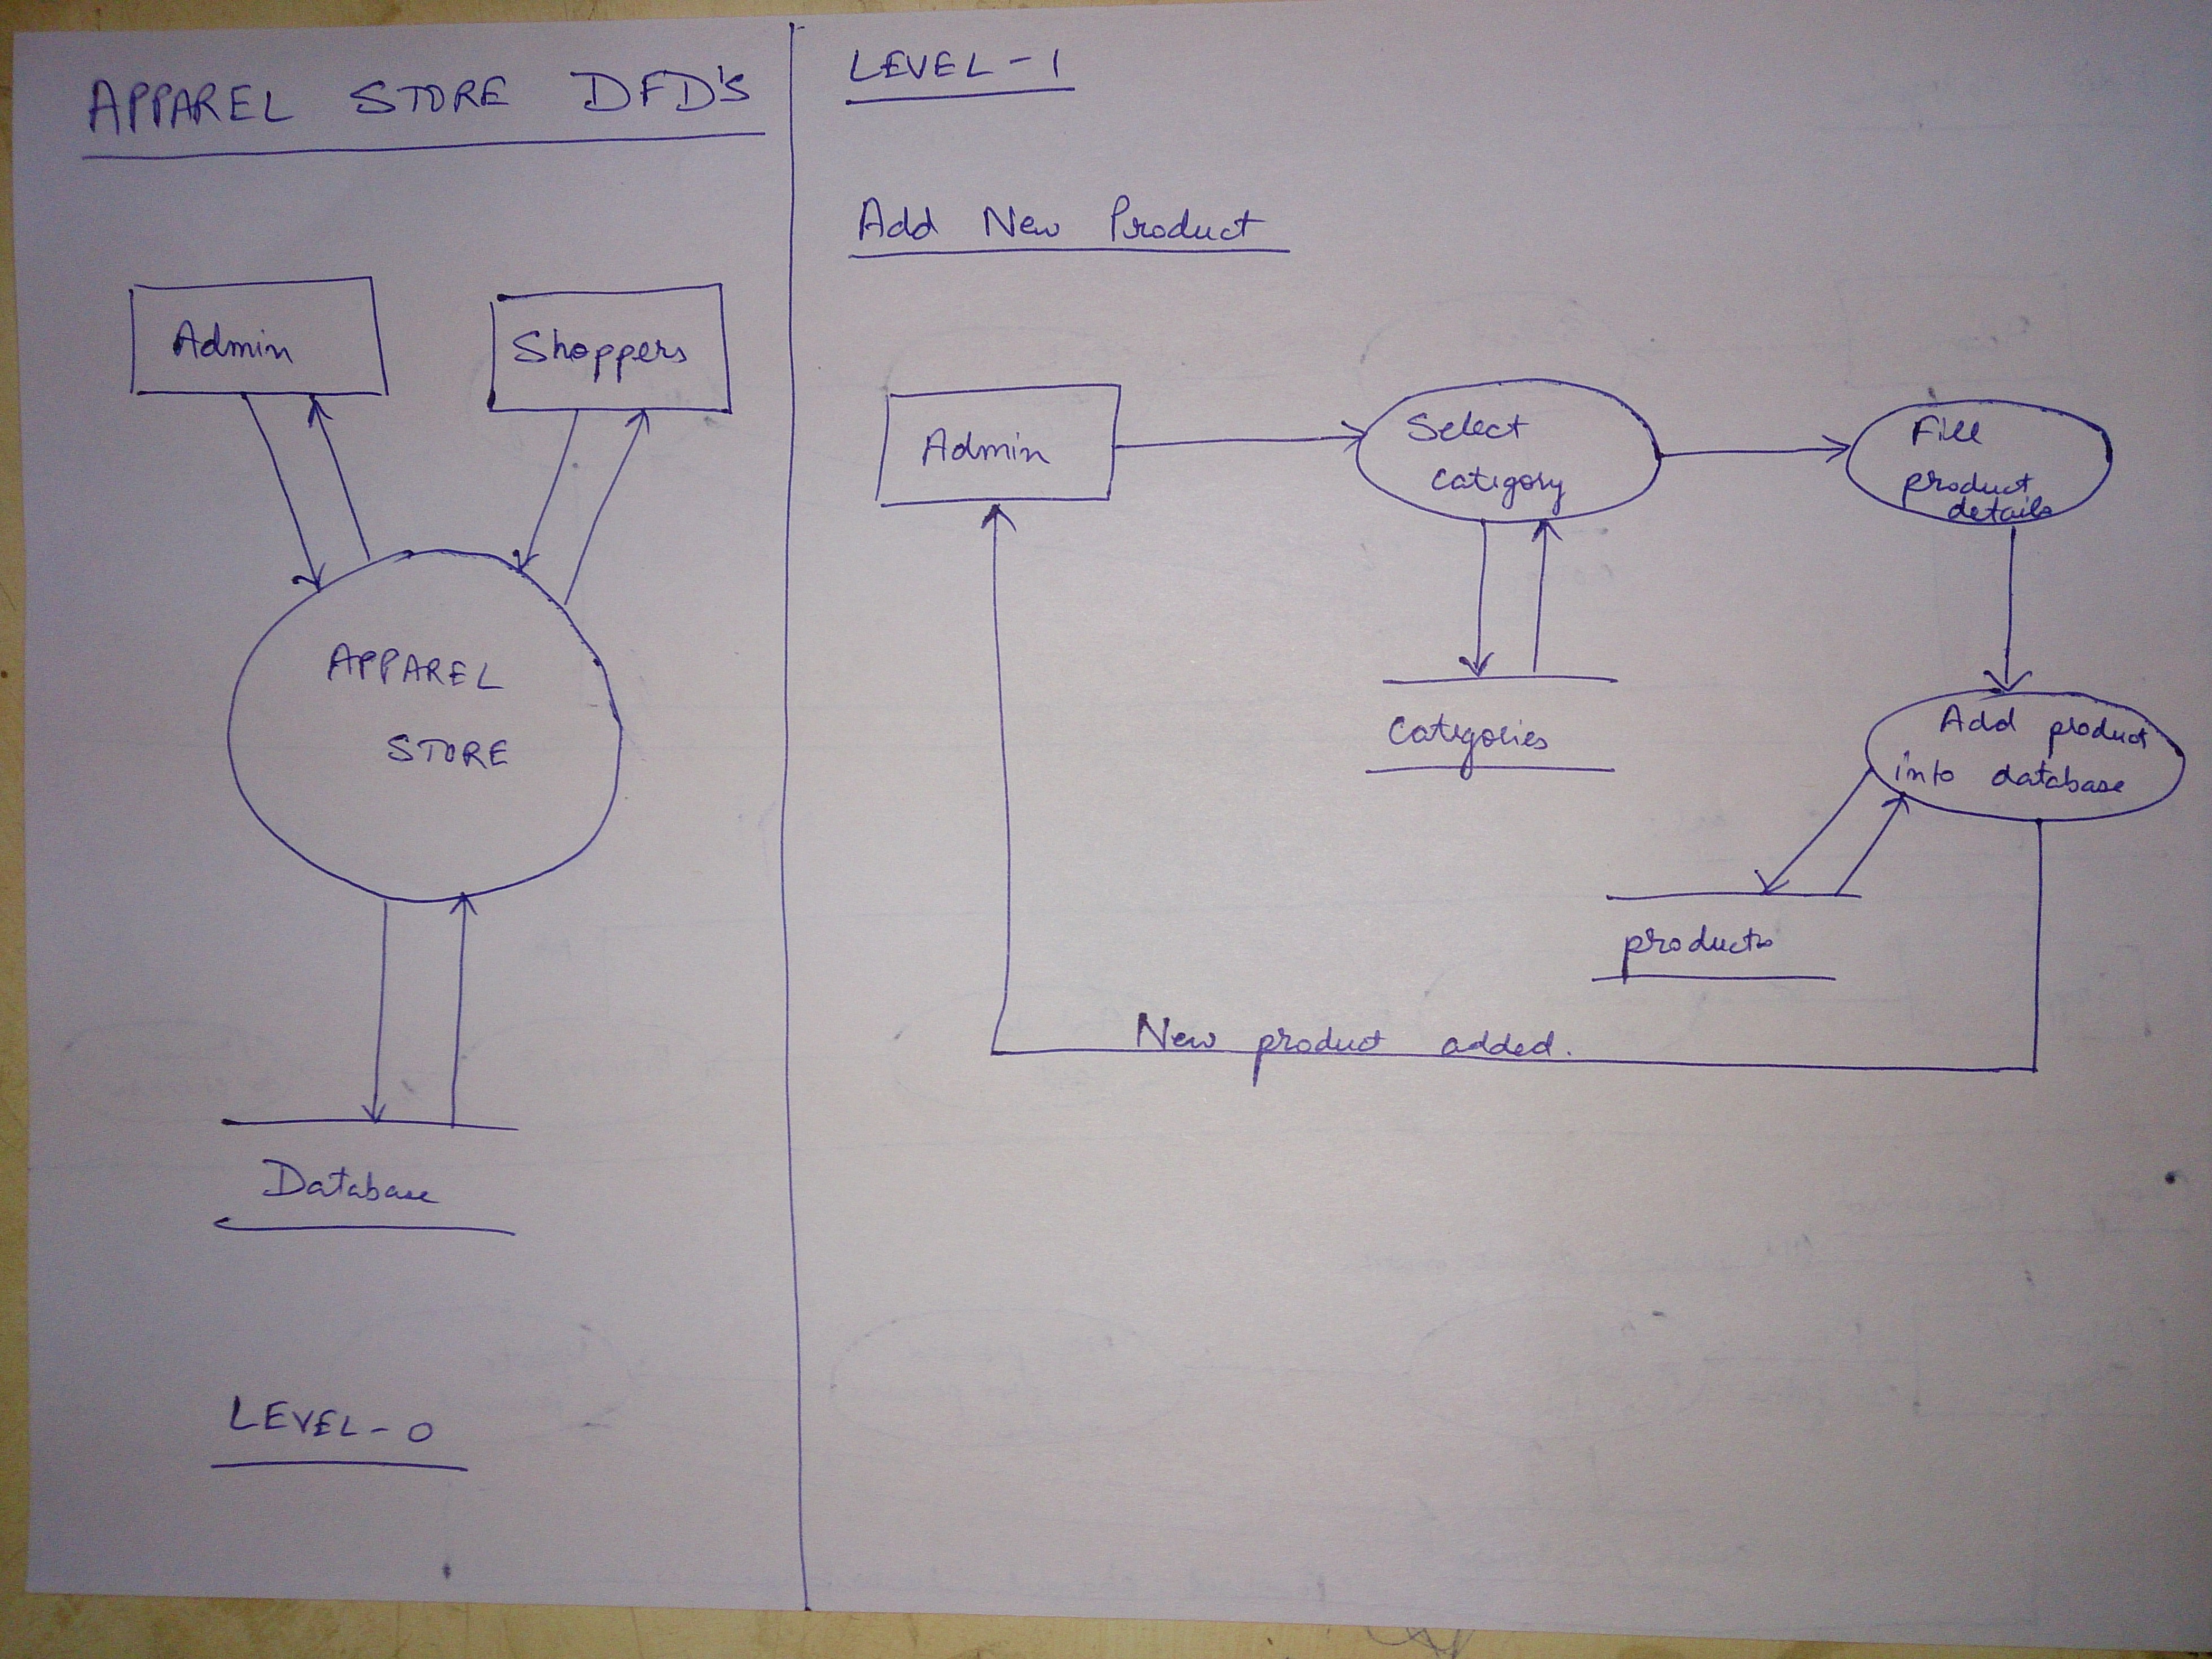 APPAREL STORE DFD's
Admin
Shoppers
APPAREL
STORE
Database
LEVEL-0
LEVEL-1
Add New Product
Admin
Select
category
Fill
product
details
Categories
Add product
into database
products
New product added.